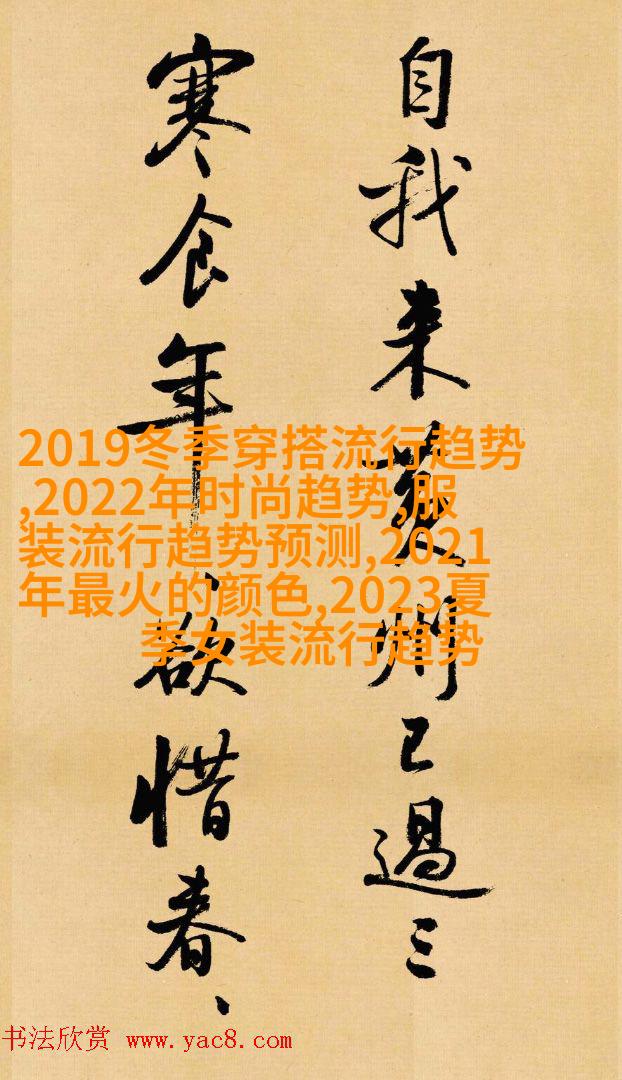 自我来黄州已過三
寒食年、欲惜春、
2019冬季穿搭流行趋势
,2022年时尚趋势,服
装流行趋势预测,2021
年最火的颜色,2023夏
季女装流行趋势
书法欣赏 www.yac8.com